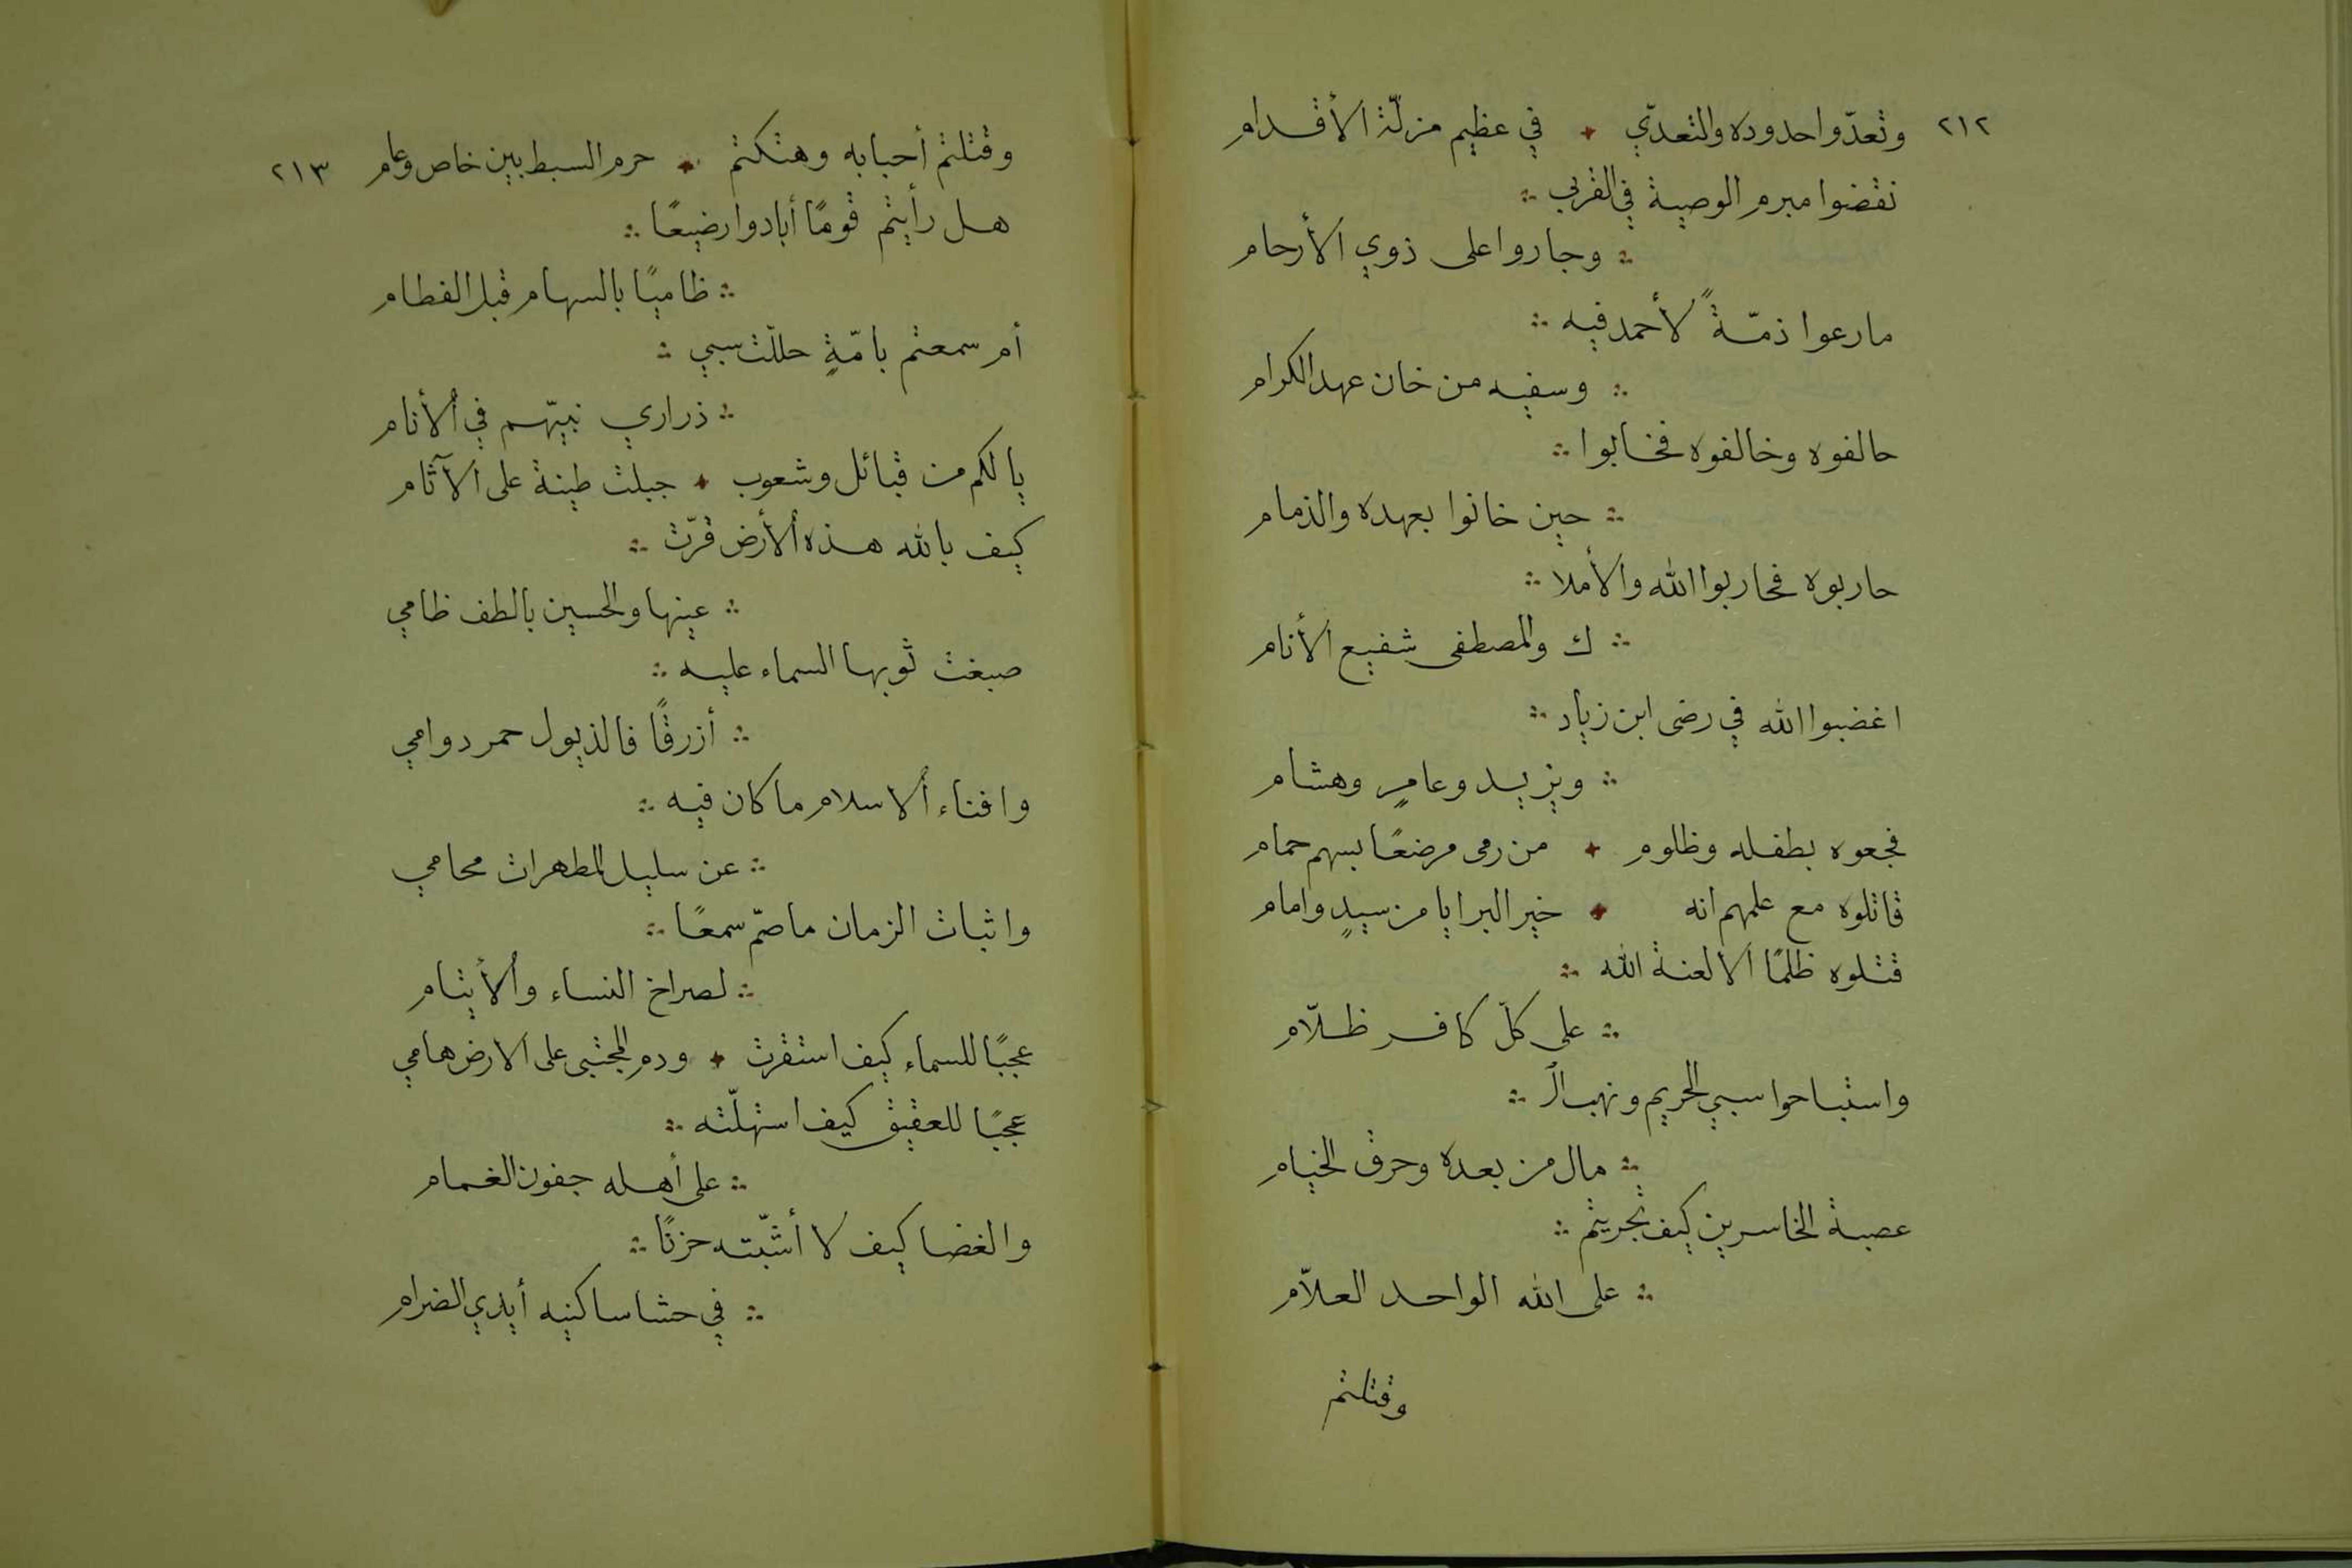 ٢١٢
وتعدّوا حدوده والتعدّي ٭ في عظيم مزلّة الأقدام
نقضوا مبرم الوصية في القربى ؞
؞ وجاروا على ذوي الأرحام
ما رعوا ذمّةً لأحمد فيه ؞
؞ وسفيه من خان عهد الكرام
حالفوه وخالفوه فخابوا ؞
؞ حين خانوا بعهده والذمام
حاربوه فحاربوا الله والأملا ؞
؞ ك والمصطفى شفيع الأنام
اغضبوا الله في رضى ابن زياد ؞
؞ ويزيد وعامرٍ وهشام
فجعوه بطفله وظلوم ٭ من رمى مرضعًا بسهم حمام
قاتلوه مع علمهم انه ٭ خير البرايا من سيدٍ وامام
قتلوه ظلمًا ألا لعنة الله ؞
؞ على كلّ كافر ظلّام
واستباحوا سبي الحريم ونهب الـ ؞
؞ مال من بعده وحرق الخيام
عصبة الخاسرين كيف تجريتم ؞
؞ على الله الواحد العلاّم
وقتلتم
٢١٣
وقتلتم أحبابه وهتكتم ٭ حرم السبط بين خاص وعام
هل رأيتم قومًا أبادوا رضيعًا ؞
؞ ظاميًا بالسهام قبل الفطام
أم سمعتم بامّةٍ حللّت سبي ؞
؞ ذراري نبيّهم في الأنام
يا لكم من قبائل وشعوب ٭ جبلت طينة على الآثام
كيف بالله هذه الأرض قرّت ؞
؞ عينها والحسين بالطف ظامي
صبغت ثوبها السماء عليه ؞
؞ أزرقًا فالذيول حمر دوامي
وافناء الاسلام ما كان فيه ؞
؞ عن سليل المطهرات محامي
واثبات الزمان ما صمّ سمعًا ؞
؞ لصراخ النساء والأيتام
عجبًا للسماء كيف استقرت ٭ ودم المجتبى على الارض هامي
عجبًا للعقيق كيف استهلّته ؞
؞ على أهله جفون الغمام
والغضا كيف لا أشبّته حزنًا ؞
؞ في حشا ساكنيه أيدي الضرام